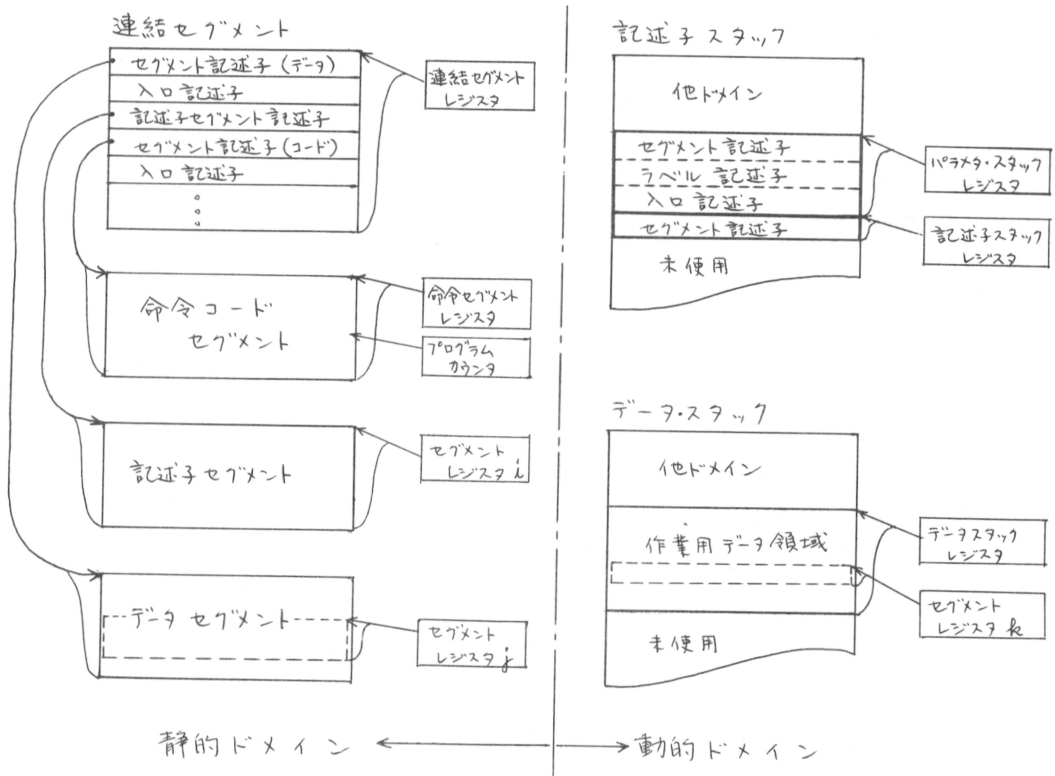 連結セグメント
セグメント記述子(データ)
入口記述子
記述子セグメント記述子
セグメント記述子(コード)
入口記述子
連結セグメント
レジスタ
命令コード
セグメント
命令セグメント
レジスタ
プログラム
カウンタ
記述子セグメント
セグメント
レジスタi
データセグメント
セグメント
レジスタj
静的ドメイン
記述子スタック
他ドメイン
セグメント記述子
ラベル記述子
入口記述子
セグメント記述子
未使用
パラメタ・スタック
レジスタ
記述子スタック
レジスタ
データ・スタック
他ドメイン
作業用データ領域
未使用
データスタック
レジスタ
セグメント
レジスタk
動的ドメイン